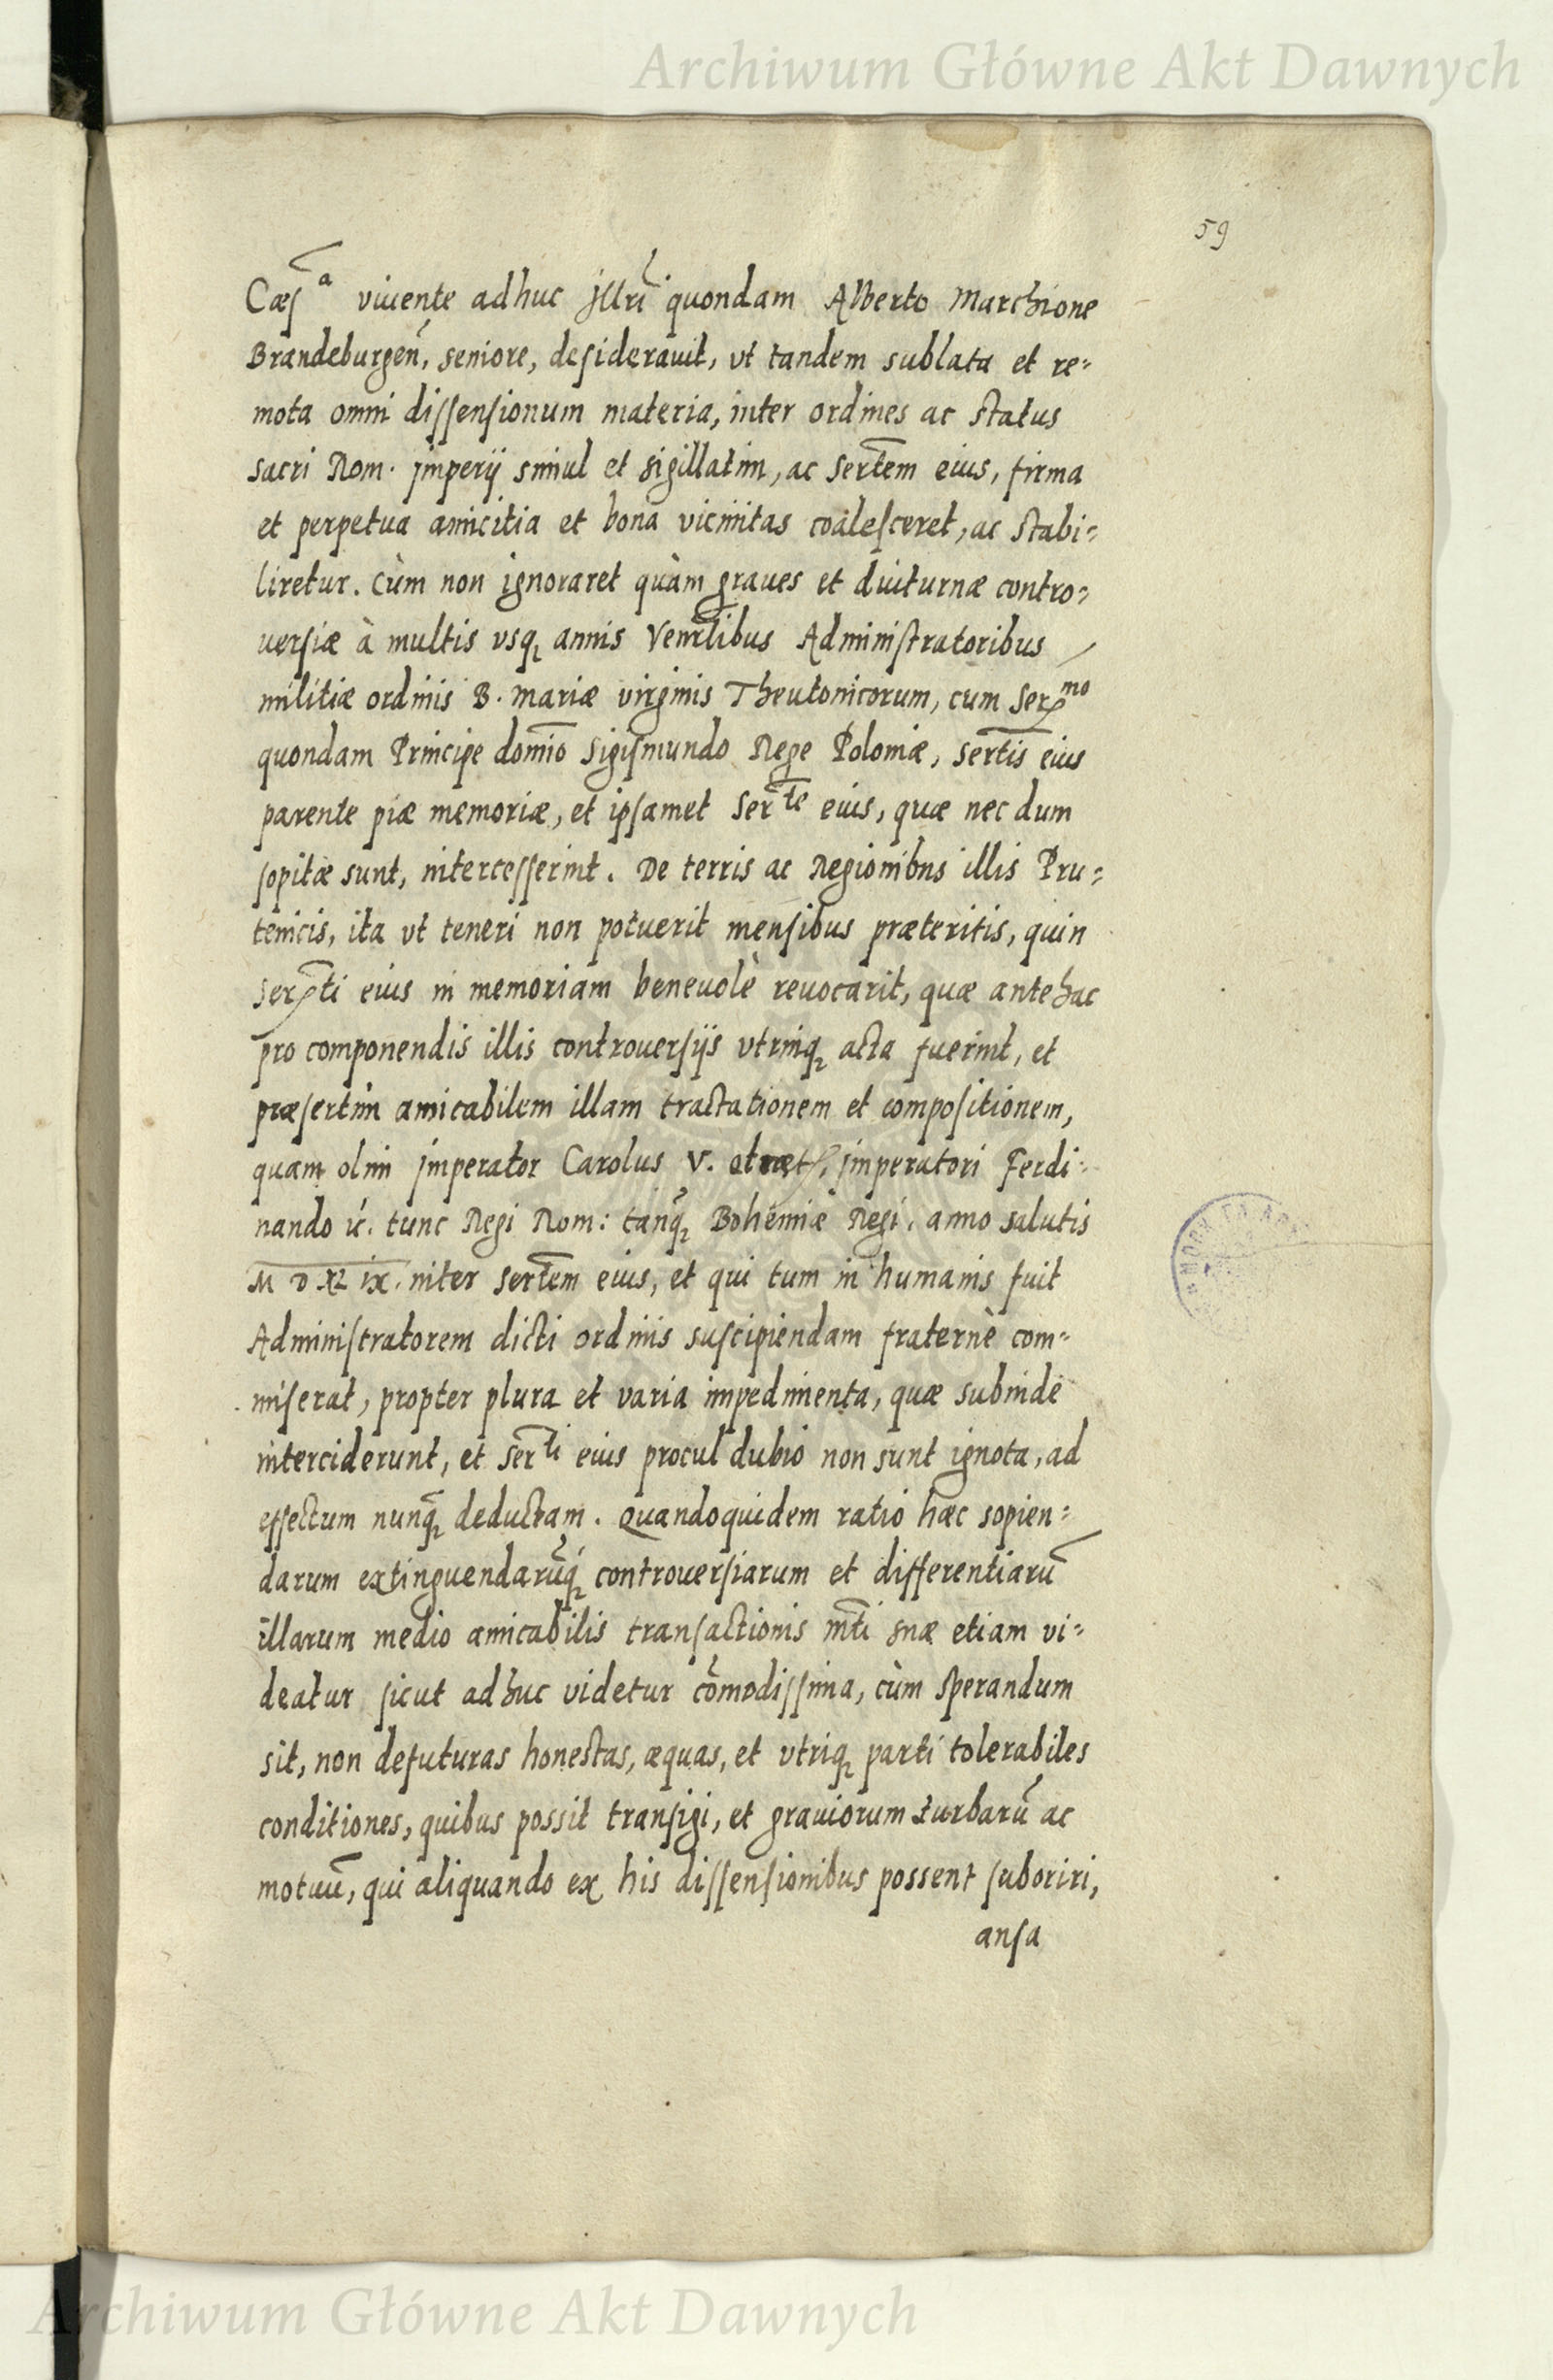 Archiwum Główne Akt Dawnych
59
Cæsª viuente adhuc Jllrĩ quondam Alberto Marchione
Brandeburgeñ, seniore, desiderauit, vt tandem sublata et re=
mota omni dissensionum materia, inter ordines ac status
sacri Rom. Jmperij simul et sigillatim, ac Sertẽm eius, firma
et perpetua amicitia et bona vicinitas coalesceret, ac stabi=
liretur. Cùm non ignoraret quàm graues et diuturnæ contro=
uersiæ à multis vsq annis Venerlibus Administratoribus
militiæ ordinis B. Mariæ virginis Theutonicorum, cum Serᵐᵒ
quondam Principe domĩo Sigismundo Rege Poloniæ, sertĩs eius
parente piæ memoriæ, et ipsamet Serᵗᵉ eius, quæ nec dum
sopitæ sunt, intercesserint. De terris ac Regionibus illis Pru=
tenicis, ita vt teneri non potuerit mensibus præteritis, quin
Serti eius in memoriam beneuolè reuocarit, quæ antehac
pro componendis illis controuersijs vtrinq acta fuerint, et
præsertim amicabilem illam tractationem et compositionem,
quam olim Jmperator Carolus V. Jmperatori Ferdi=
nando ꝛc. tunc Regi Rom: tanq̃ Bohemiæ Regi, anno salutis
M D XL IX. inter Sertẽm eius, et qui tum in humanis fuit
Administratorem dicti ordinis suscipiendam fraternè com=
miserat, propter plura et varia impedimenta, quæ subinde
interciderunt, et Serᵗⁱ eius procul dubio non sunt ignota, ad
effectum nunq̃ deductam. Quandoquidem ratio hæc sopien=
darum extinguendarũq controuersiarum et differentiarũ
illarum medio amicabilis transactionis Mtĩ suæ etiam vi=
deatur sicut adhuc videtur cõmodissima, cùm sperandum
sit, non defuturas honestas, æquas, et vtriq parti tolerabiles
conditiones, quibus possit transigi, et grauiorum turbarũ ac
motuũ, qui aliquando ex his dissensionibus possent suboriri,
ansa
Archiwum Główne Akt Dawnych